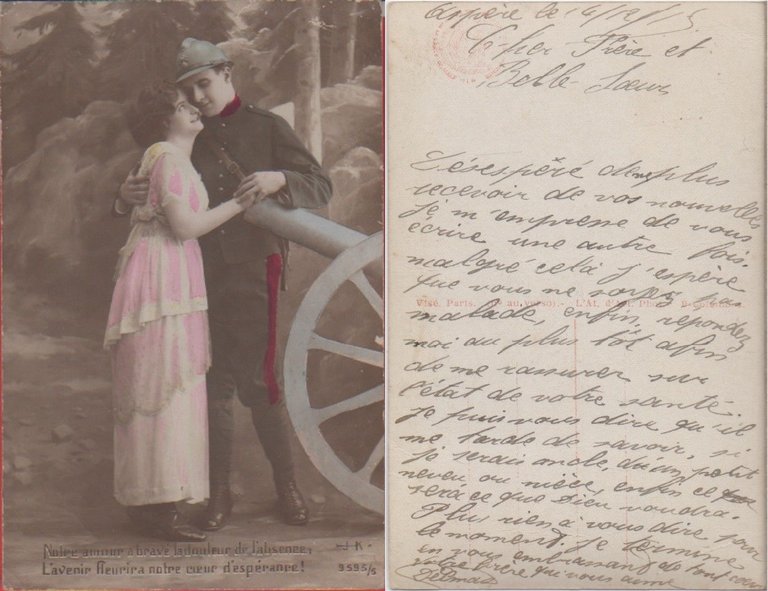 Notre amour a bravé la douleur de l'absence,
L'avenir fleurira notre cœur d'espérance !
J K
9595/5
Cher Frère et
Belle Sœur
Désespéré de ne plus
recevoir de vos nouvelles
je m'empresse de vous
écrire une autre fois.
malgré celà j'espère
que vous ne soyez pas
Visé Paris. au verso). - L'At. d'Art Phot.
malade, enfin répondez
moi au plus tôt afin
de me rassurer sur
l'état de votre santé.
Je puis vous dire qu'il
me tarde de savoir, si
je serais oncle, d'un petit
neveu ou nièce, enfin ce
sera ce que Dieu voudra.
Plus rien à vous dire pour
le moment. Je termine
en vous embrassant de tout cœur
votre frère qui vous aime